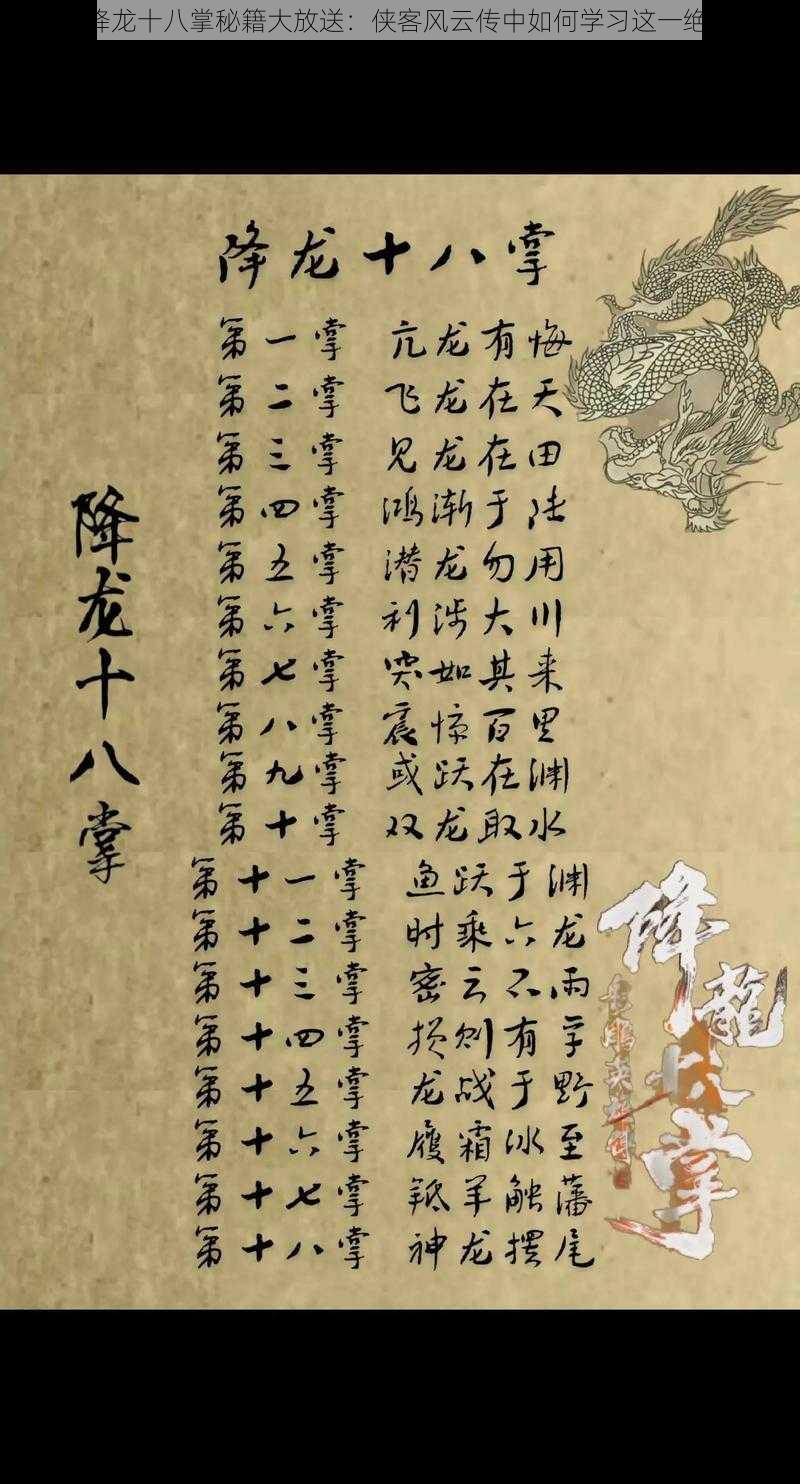 降龙十八掌秘籍大放送：侠客风云传中如何学习这一绝
降龙十八掌
第一掌 亢龙有悔
第二掌 飞龙在天
第三掌 见龙在田
第四掌 鸿渐于陆
第五掌 潜龙勿用
第六掌 利涉大川
第七掌 突如其来
第八掌 震惊百里
第九掌 或跃在渊
第十掌 双龙取水
第十一掌 鱼跃于渊
第十二掌 时乘六龙
第十三掌 密云不雨
第十四掌 损则有孚
第十五掌 龙战于野
第十六掌 履霜冰至
第十七掌 羝羊触藩
第十八掌 神龙摆尾
降龙十八掌
降龍
掌